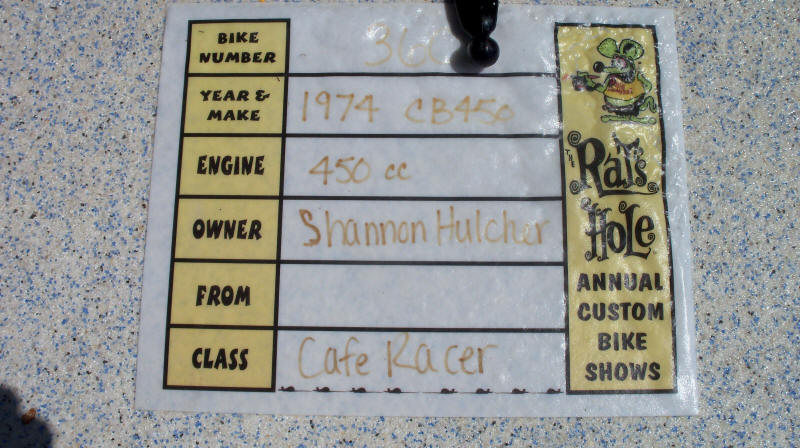 BIKE NUMBER
YEAR & MAKE 1974 CB450
ENGINE 450 cc
OWNER Shannon Hulcher
FROM
CLASS Cafe Racer
THE
Rat's
Hole
ANNUAL
CUSTOM
BIKE
SHOWS